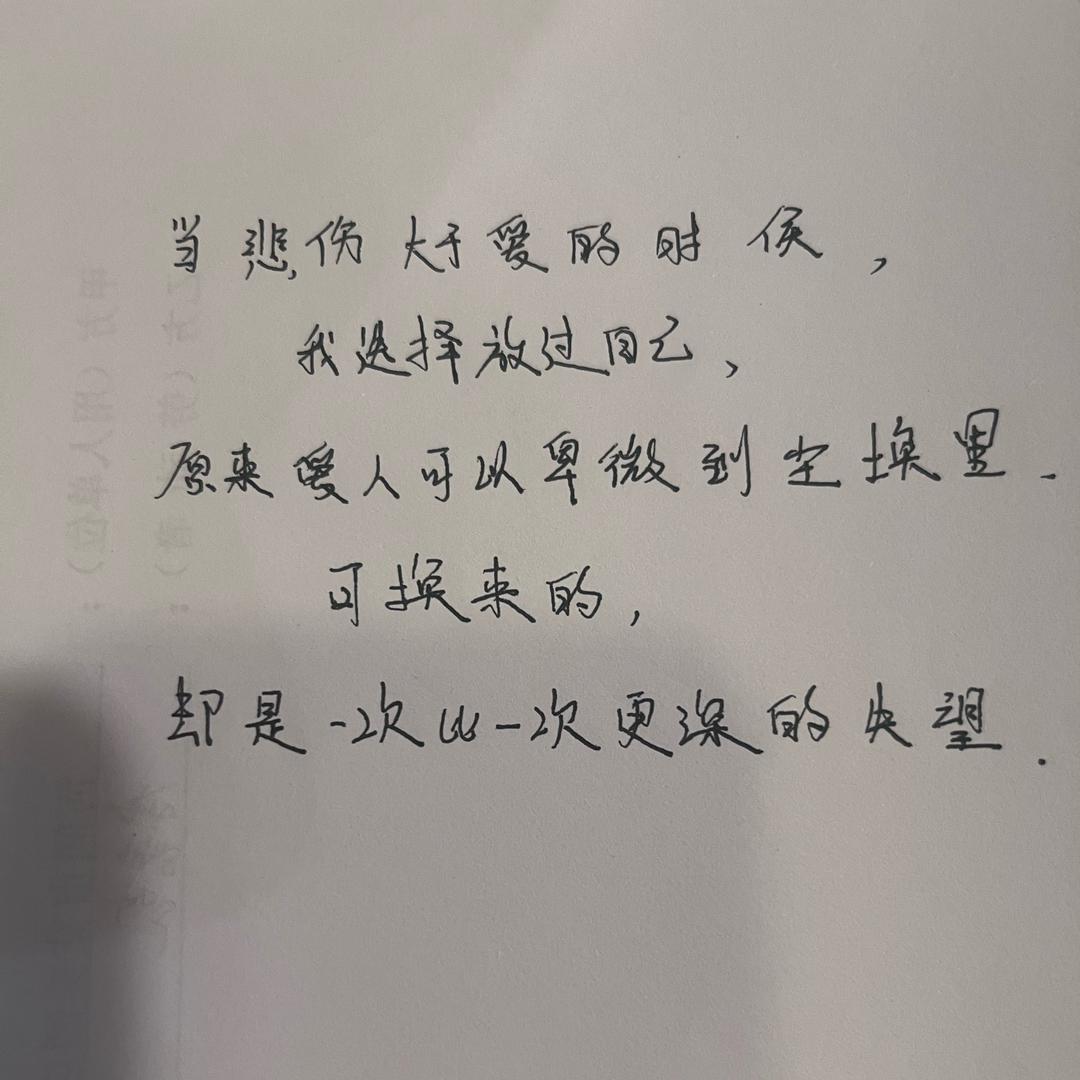 当悲伤大于爱的时侯，
我选择放过自己，
原来爱人可以卑微到尘换里.
可换来的，
却是一次比一次更深的失望.